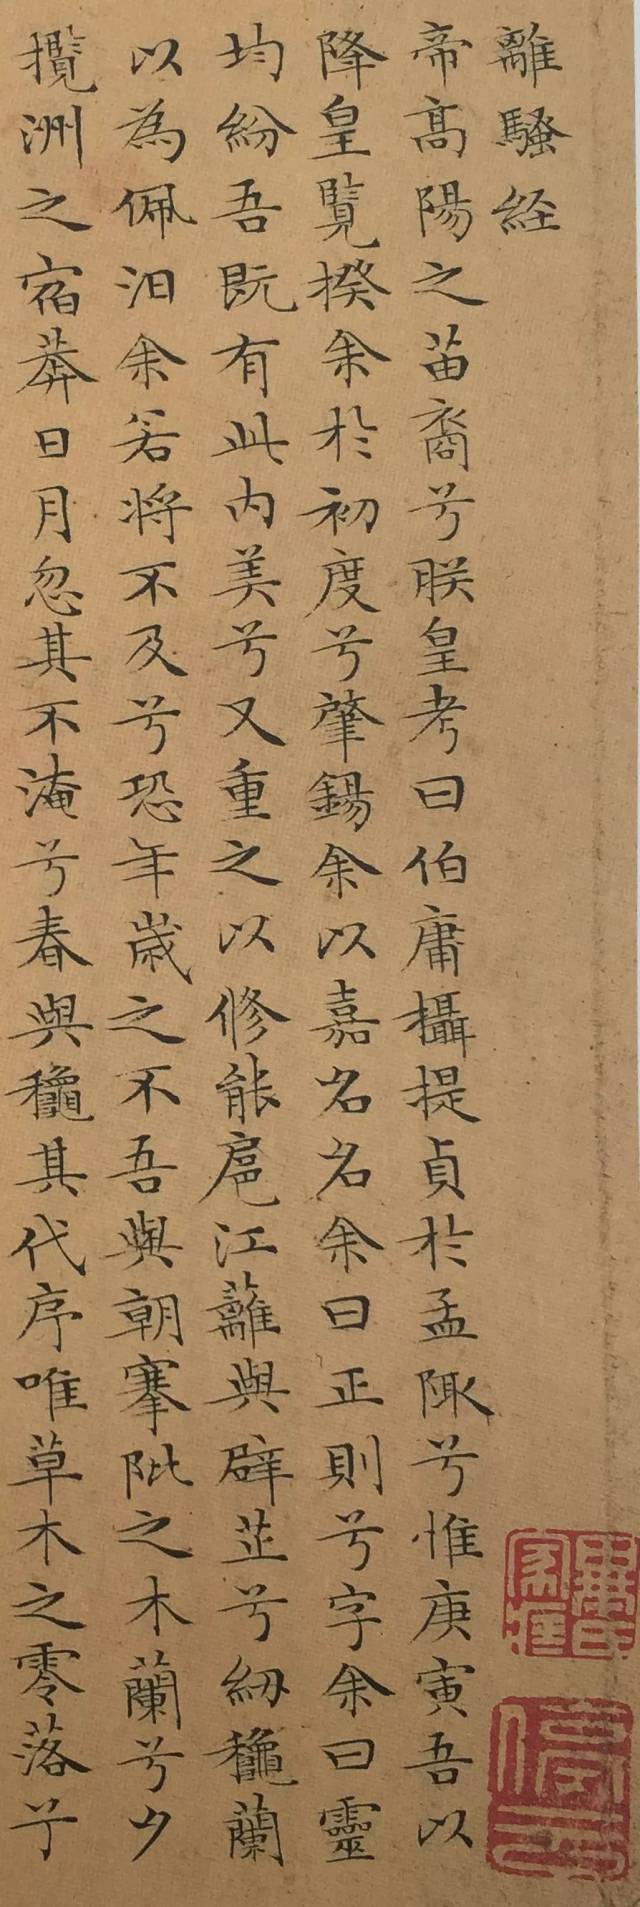 離騷経
帝髙陽之苗裔兮朕皇考曰伯庸攝提貞於孟陬兮惟庚寅吾以
降皇覽揆余於初度兮肇錫余以嘉名名余曰正則兮字余曰靈
均紛吾既有此内美兮又重之以修能扈江蘺與辟芷兮紉龝蘭
以為佩汩余若将不及兮恐年歳之不吾與朝搴阰之木蘭兮夕
攬洲之宿莽日月忽其不淹兮春與龝其代序唯草木之零落兮
停云